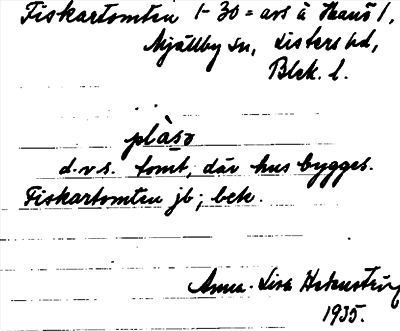 Fiskartomten 1-30 = ars å Hanö 1,
Mjällby sn, Listers hd,
Blek. l.
plàsɔ
d.v.s. tomt, där hus bygges.
Fiskartomten jb; bek.
Anna-Lisa
1935.